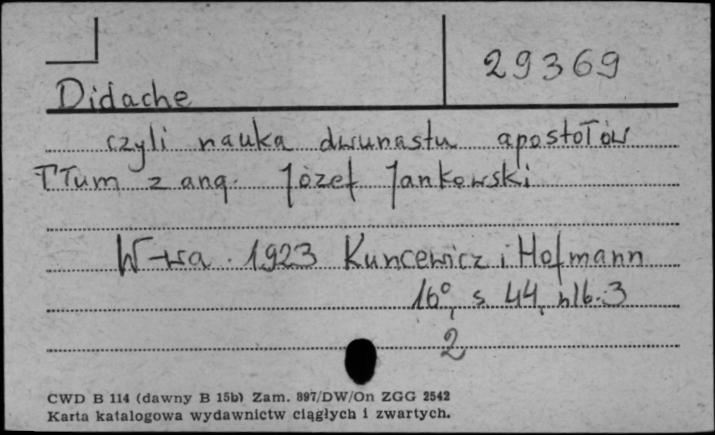 29369
Didache
czyli nauka dwunastu apostołów
Tłum z ang. Józef Jankowski
W-wa. 1923 Kuncewicz i Hofmann
16°, s. 44, nlb. 3
2
CWD B 114 (dawny B 15b) Zam. 897/DW/On ZGG 2542
Karta katalogowa wydawnictw ciągłych i zwartych.